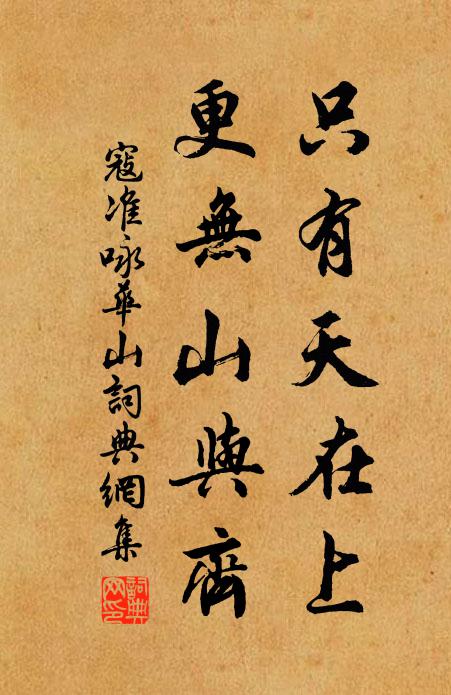 只有天在上
更無山與齊
寇准咏華山詞典網集
詞典網印